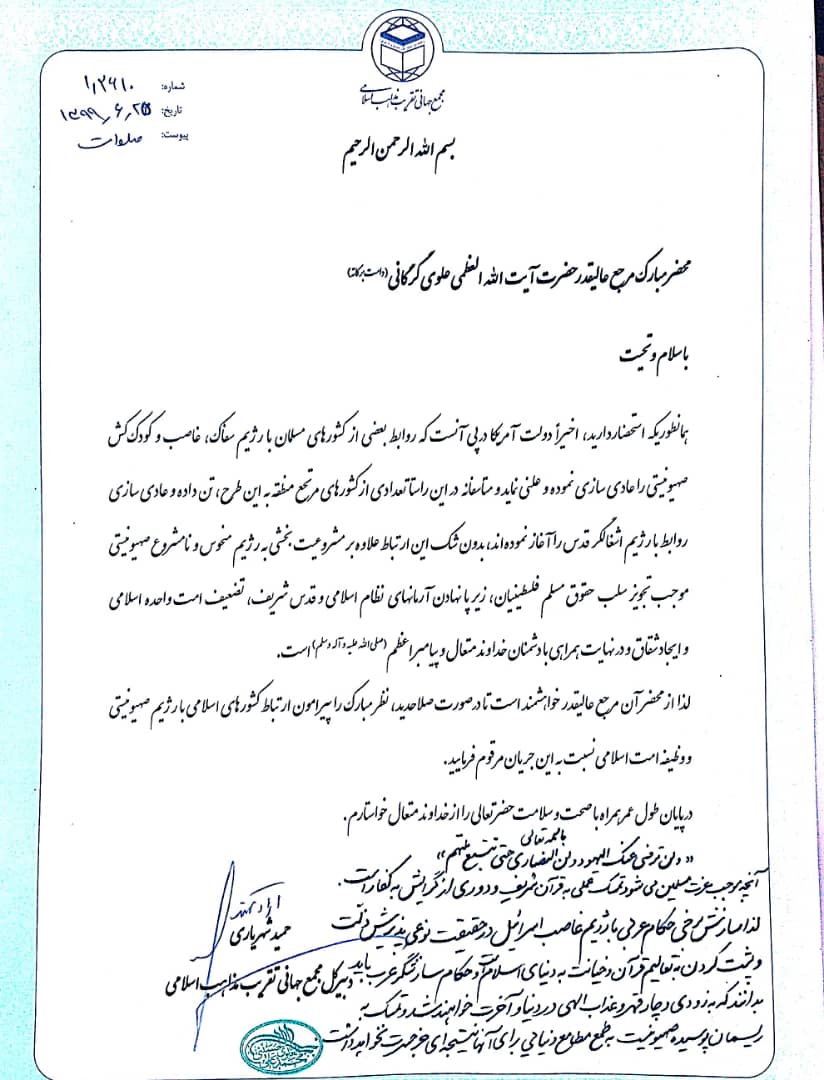 مجمع جهانی تقریب مذاهب اسلامی
شماره: ۱٫۲۶۱۰
تاریخ: ۱۳۹۹٫۶٫۲۵
پیوست:
بسم الله الرحمن الرحیم
محضر مبارک مرجع عالیقدر حضرت آیت الله العظمی علوی گرگانی (دامت برکاته)
با سلام و تحیت
همانطوریکه استحضار دارید، اخیراً دولت آمریکا در پی آنست که روابط بعضی از کشورهای مسلمان با رژیم سفاک، غاصب و کودک کش
صهیونیتی را عادی سازی نموده و علنی نماید و متاسفانه در این راستا تعدادی از کشورهای مرتجع منطقه به این طرح، تن داده و عادی سازی
روابط با رژیم اشغالگر قدس را آغاز نموده اند، بدون شک این ارتباط علاوه بر مشروعیت بخشی به رژیم منحوس و نامشروع صهیونیتی
موجب تجویز سلب حقوق مسلم فلسطینیان، زیر پا نهادن آرمانهای نظام اسلامی و قدس شریف، تضعیف امت واحده اسلامی
و ایجاد شقاق و در نهایت همراهی با دشمنان خداوند متعال و پیامبر اعظم (صلی الله علیه و آله وسلم) است.
لذا از محضر آن مرجع عالیقدر خواهشمند است تا در صورت صلاحدید، نظر مبارک را پیرامون ارتباط کشورهای اسلامی با رژیم صهیونیتی
و وظیفه امت اسلامی نسبت به این جریان مرقوم فرمایید.
در پایان طول عمر همراه با صحت و سلامت حضرتعالی را از خداوند متعال خواستارم.
باسمه تعالی
«ولن ترضی عنک الیهود ولن النصاری حتی تتبع ملتهم»
آنچه موجب عزت مسلمین می شود تمسک عملی به قرآن شریف و دوری از گرایش به کفار است.
لذا سازش برخی حکام عربی با رژیم غاصب اسرائیل در حقیقت نوعی پذیرش ذلت
و پشت کردن به تعالیم قرآن و خیانت به دنیای اسلام است و حکام سازشگر عرب باید
بدانند که به زودی دچار قهر و عذاب الهی در دنیا و آخرت خواهند شد و تمسک به
ریسمان پوسیده صهیونیت به طمع مطامع دنیایی برای آنها نتیجه ای جز حسرت نخواهد داشت
حمید شهریاری
دبیرکل مجمع جهانی تقریب مذاهب اسلامی